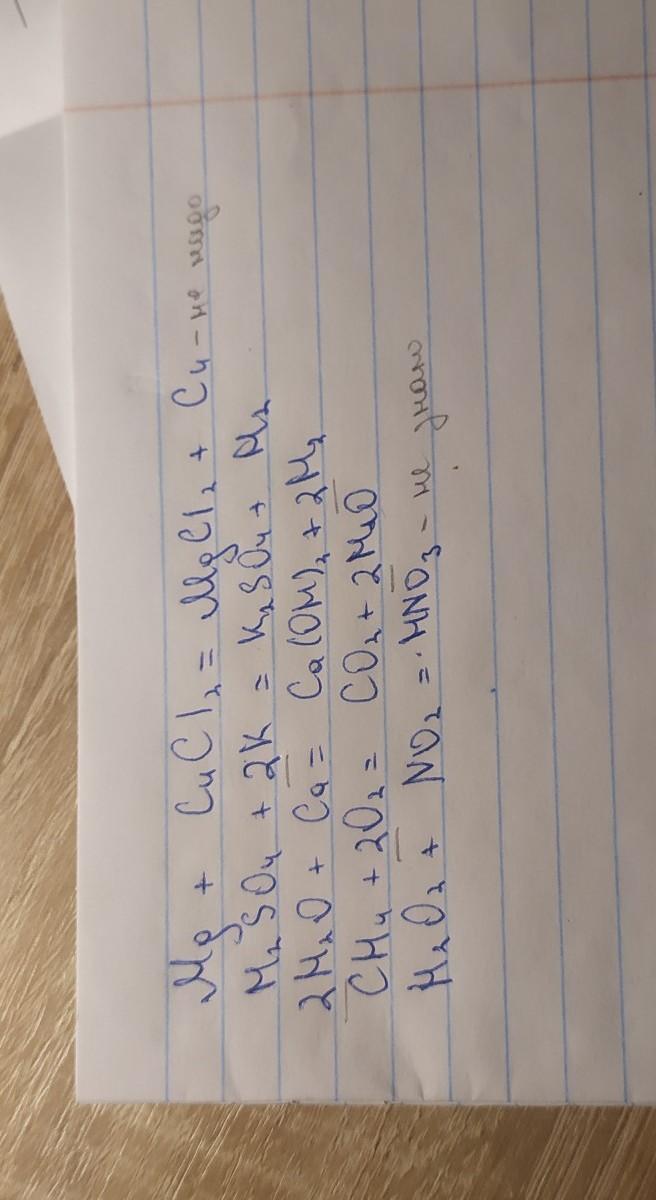 Mg + CuCl₂ = MgCl₂ + Cu - не надо
H₂SO₄ + 2K = K₂SO₄ + H₂
2H₂O + Ca = Ca(OH)₂ + 2H₂
CH₄ + 2O₂ = CO₂ + 2H₂O
H₂O₂ + NO₂ = HNO₃ - не знаю